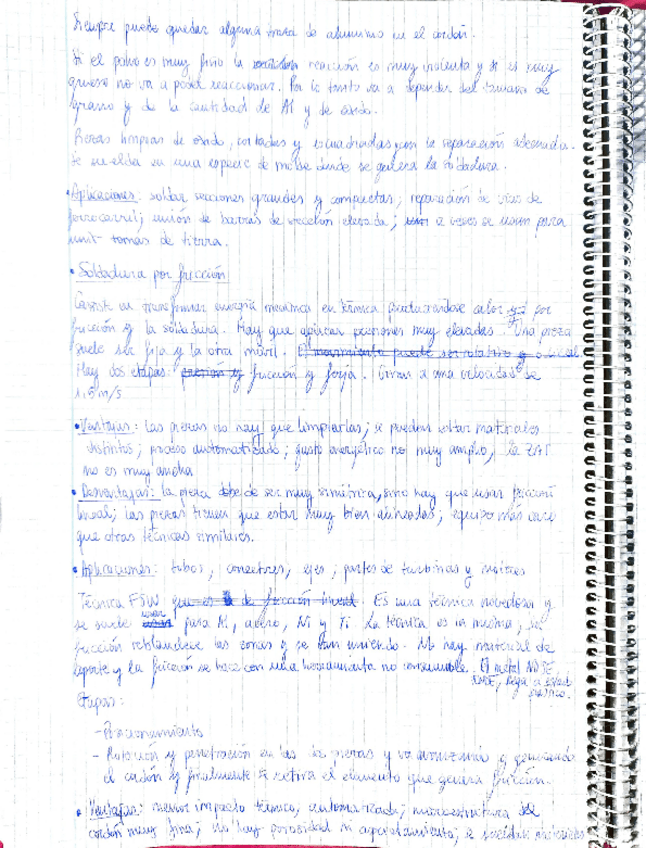 Siempre puede quedar alguna traza de aluminio en el cordón.
Si el polvo es muy fino la reacción es muy violenta y si es muy
grueso no va a poder reaccionar. Por lo tanto va a depender del tamaño de
grano y de la cantidad de Al y de óxido.
Piezas limpias de óxido, cortadas y escuadradas con la separación adecuada.
Se suelda en una especie de molde donde se genera la soldadura.
• Aplicaciones: soldar secciones grandes y compactas; reparación de vías de
ferrocarril; unión de barras de sección elevada; a veces se usan para
unir tomas de tierra.
• Soldadura por fricción
Consiste en transformar energía mecánica en térmica produciéndose calor por
fricción y la soldadura. Hay que aplicar presiones muy elevadas. Una pieza
suele ser fija y la otra móvil. El movimiento puede ser rotativo y o lineal
Hay dos etapas: presión y fricción y forja. Giran a una velocidad de
1,5 m/s
• Ventajas: las piezas no hay que limpiarlas; se pueden soldar materiales
distintos; proceso automatizado; gasto energético no muy amplio, la ZAT
no es muy ancha
• Desventajas: la pieza debe de ser muy simétrica, sino hay que usar fricción
lineal; las piezas tienen que estar muy bien alineadas; equipo más caro
que otras técnicas similares.
• Aplicaciones: tubos, conectores, ejes, partes de turbinas y motores
Técnica FSW que es de fricción lineal. Es una técnica novedosa y
se suele usar para Al, acero, Ni y Ti. La técnica es la misma, la
fricción reblandece las zonas y se van uniendo. No hay material de
aporte y la fricción se hace con una herramienta no consumible. El metal NO SE
FUNDE, llega a estado
plástico.
Etapas:
- Posicionamiento
- Rotación y penetración en las dos piezas y va avanzando y generando
el cordón y finalmente se retira el elemento que genera fricción.
• Ventajas: menor impacto térmico, automatizada; microestructura del
cordón muy fina; no hay porosidad ni agrietamiento; se sueldan materiales